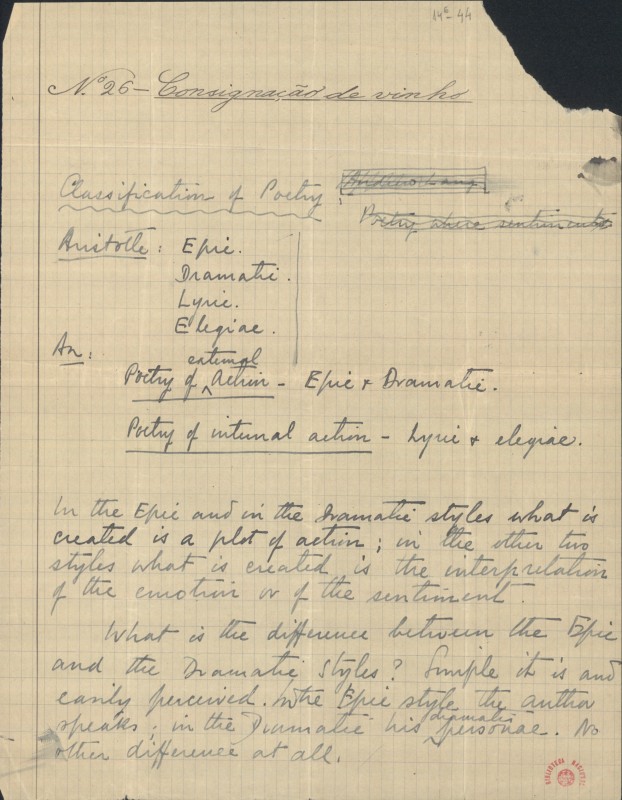 14⁶-44
Nº 26 - Consignação de vinho
Classification of Poetry
Poetry where sentiments
Aristotle: Epic.
Dramatic.
Lyric.
Elegiac.
An:
external
Poetry of Action - Epic & Dramatic.
Poetry of internal action - Lyric & elegiac.
In the Epic and in the Dramatic styles what is
created is a plot of action; in the other two
styles what is created is the interpretation
of the emotion or of the sentiment.
What is the difference between the Epic
and the Dramatic styles? Simple it is and
easily perceived. In the Epic style the author
speaks; in the Dramatic his dramatis personae. No
other difference at all.
BIBLIOTECA NACIONAL